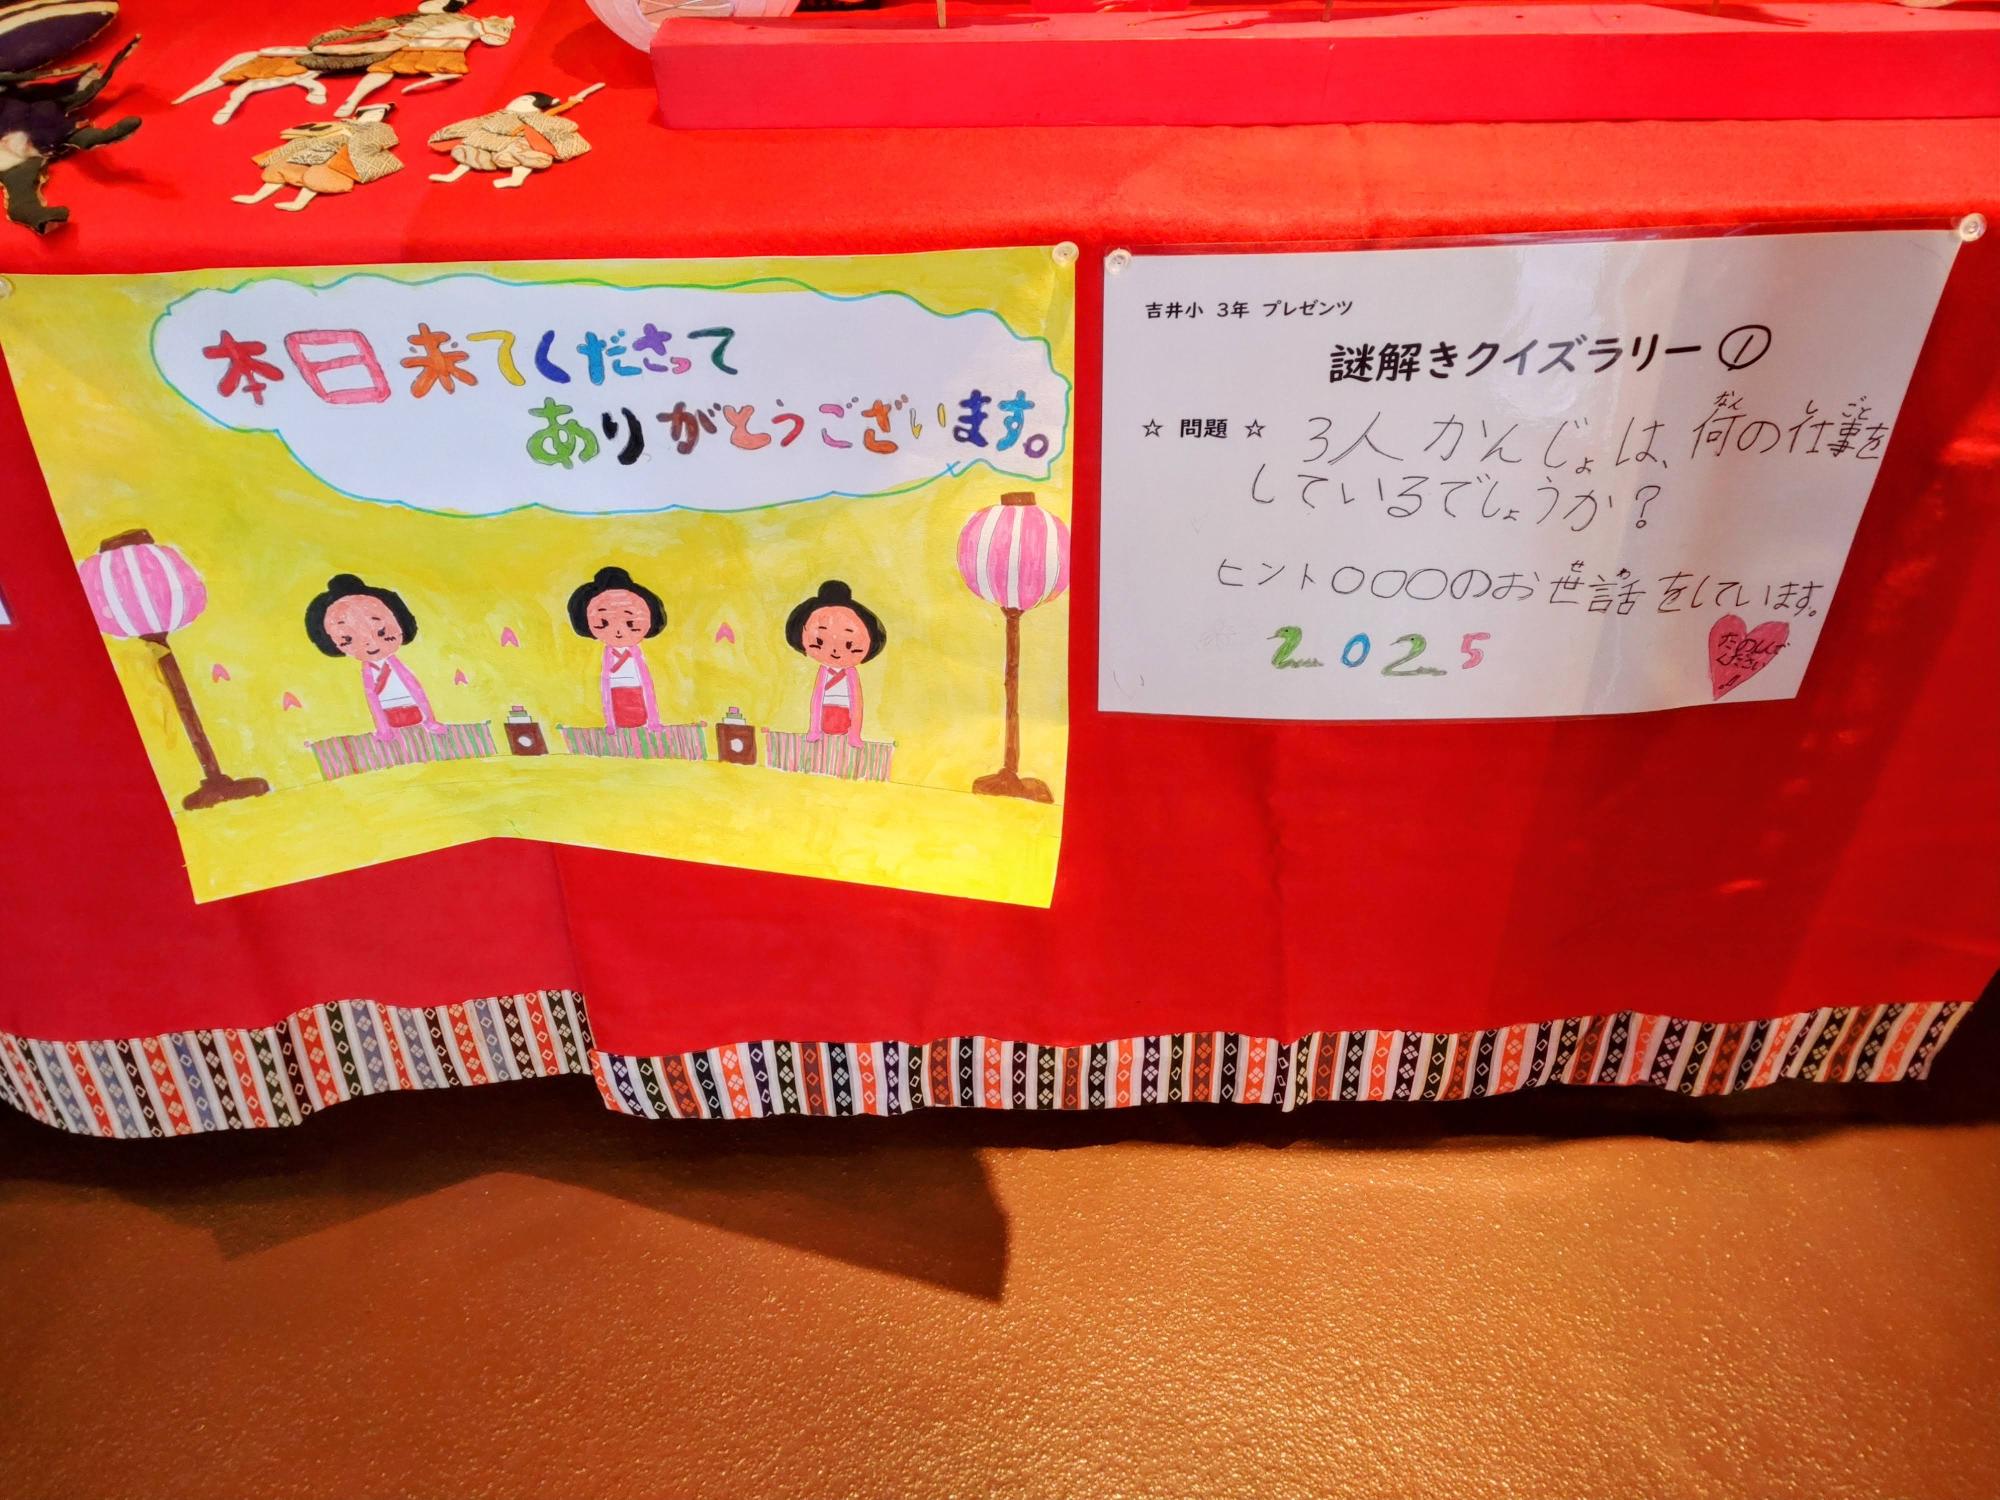 本日来てくださって
ありがとうございます。
吉井小 3年 プレゼンツ
謎解きクイズラリー①
☆ 問題 ☆ 3人かんじょは、何の仕事を
なん しごと
しているでしょうか?
ヒント○○○のお世話をしています。
せわ
2025
たのしんで
ください
!!